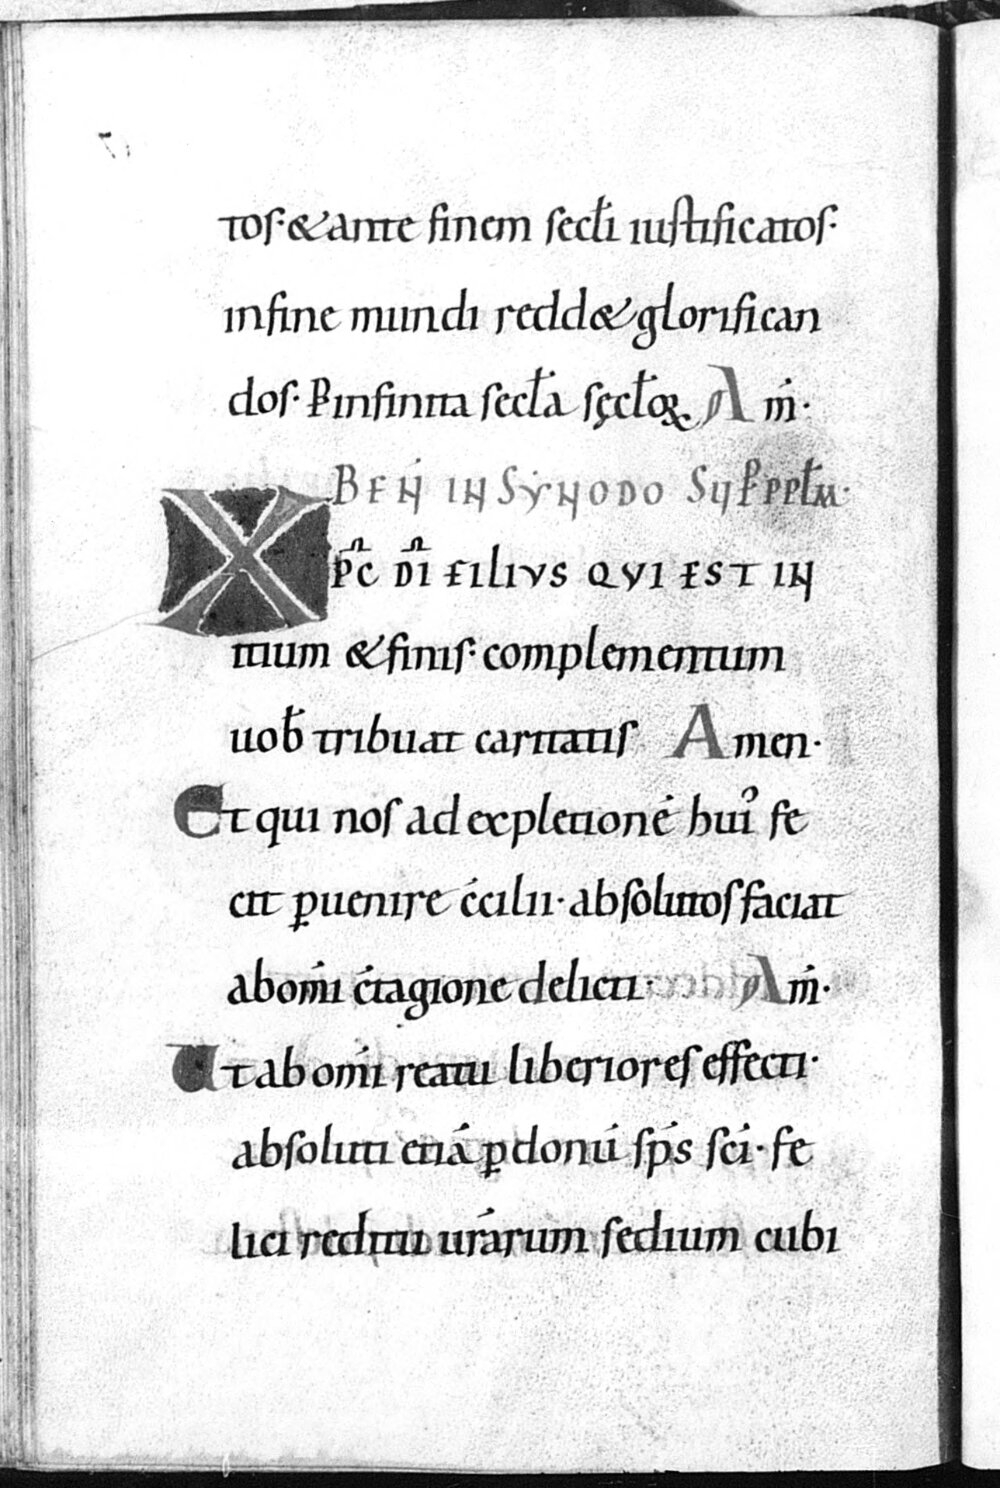 tos· & ante finem secl̄i iustificatos·
in fine mundi redd& glorifican
dos· P̱ infinita secl̄a sęcl̄oꝝ Am̄·
BEN̄ IN SYNODO SUP̱ PPL̄M·
XP̄C D̄I FILIVS QVI EST IN
itium & finis· complementum
uob̄ tribuat caritatis Amen·
Et qui nos ad expletionē huiꝰ fe
cit ꝑuenire c̄cilii· absolutos faciat
ab om̄i c̄tagione delicti· Am̄·
Ut ab om̄i reatu liberiores effecti·
absoluti etiā ꝑ donū sp̄s sc̄i· fe
lici reditu ur̄arum sedium cubi